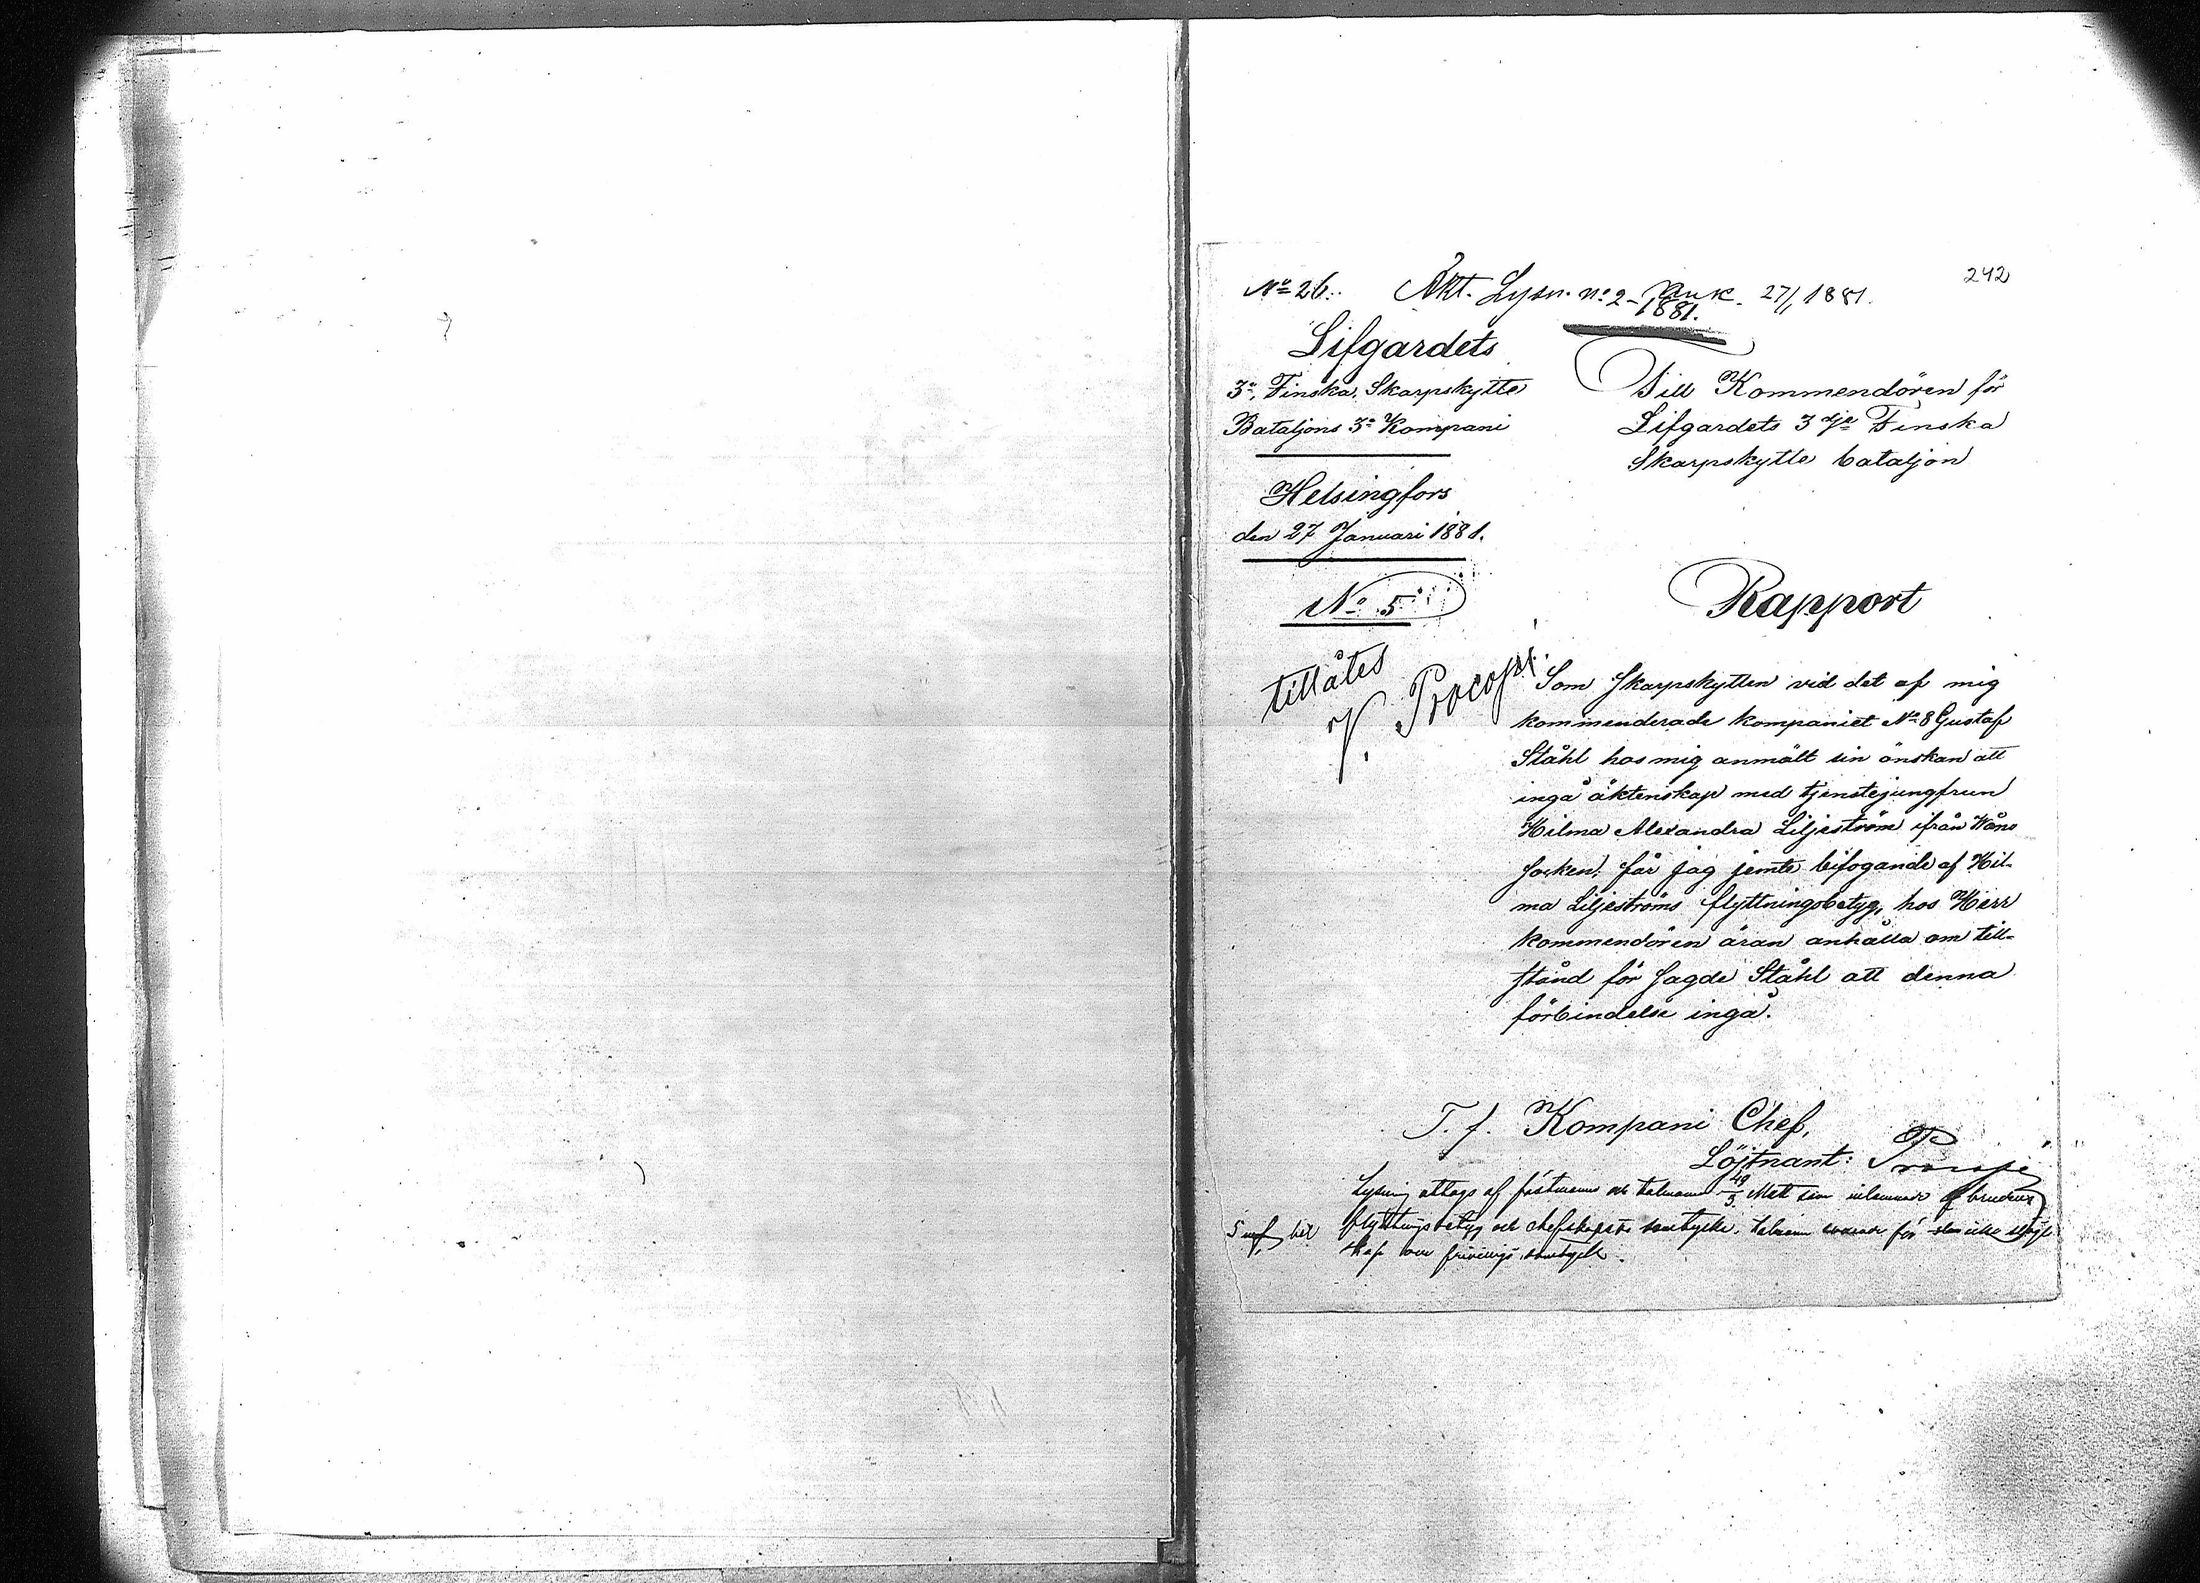 242
No 26. Äkt. Lysn. no 2 - 27/1 1881.
1881.
Lifgardets
3e Finska Skarpskytte
Bataljons 3e Kompani
Helsingfors
den 27 Januari 1881.
No 5
tillåtes
V. Procopé.
Till Kommendören för
Lifgardets 3dje Finska
Skarpskytte bataljon
Rapport
Som Skarpskytten vid det af mig
kommenderade kompaniet No 8 Gustaf
Ståhl hos mig anmält sin önskan att
ingå äktenskap med tjenstejungfrun
Hilma Alexandra Liljeström ifrån Wånå
Socken, får jag jemte bifogande af Hil-
ma Liljeströms flyttningsbetyg, hos Herr
kommendören äran anhålla om till-
stånd för sagde Ståhl att denna
förbindelse ingå.
T. f. Kompani Chef,
Löjtnant: Procopé
Lysning uttogs af fästmannen och som inlemnade brudens
flyttningsbetyg och chefskapets samtycke. för